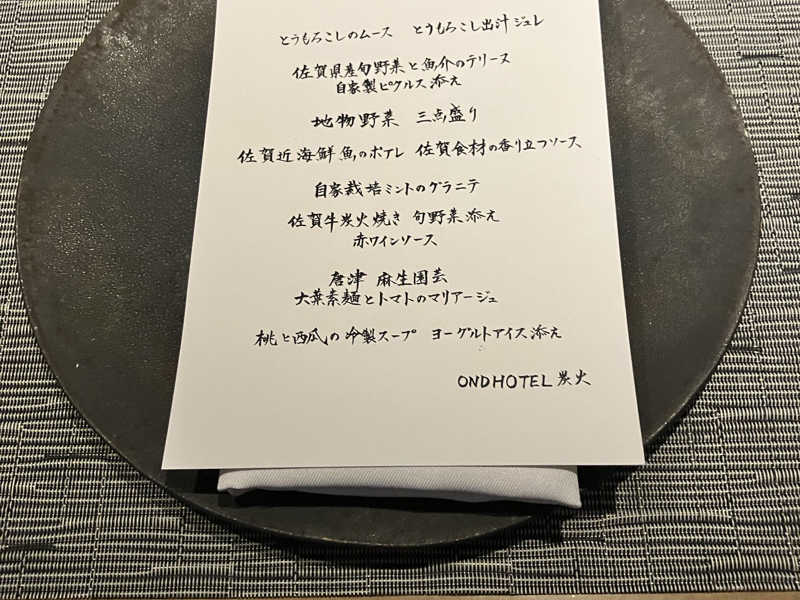 とうもろこしのムース とうもろこし出汁ジュレ
佐賀県産旬野菜と魚介のテリーヌ
自家製ピクルス添え
地物野菜 三点盛り
佐賀近海鮮魚のポアレ 佐賀食材の香り立つソース
自家栽培ミントのグラニテ
佐賀牛炭火焼き 旬野菜添え
赤ワインソース
唐津 麻生園芸
大葉素麺とトマトのマリアージュ
桃と西瓜の冷製スープ ヨーグルトアイス添え
OND HOTEL 炭火